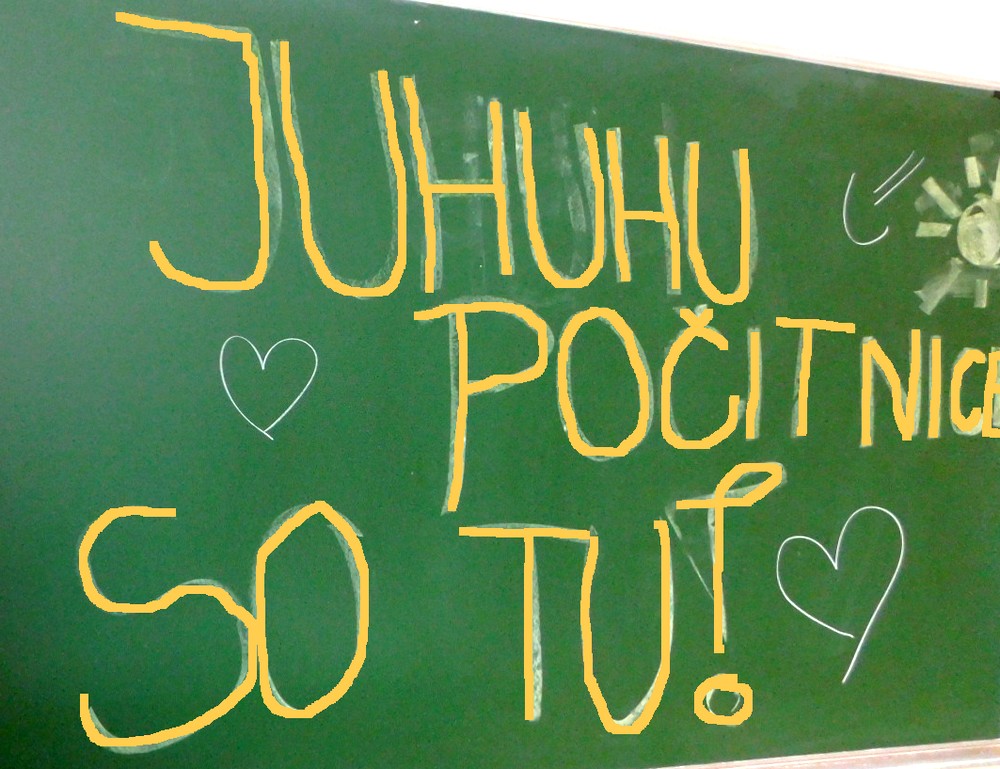 JUHUHU
POČITNICE
SO TU!